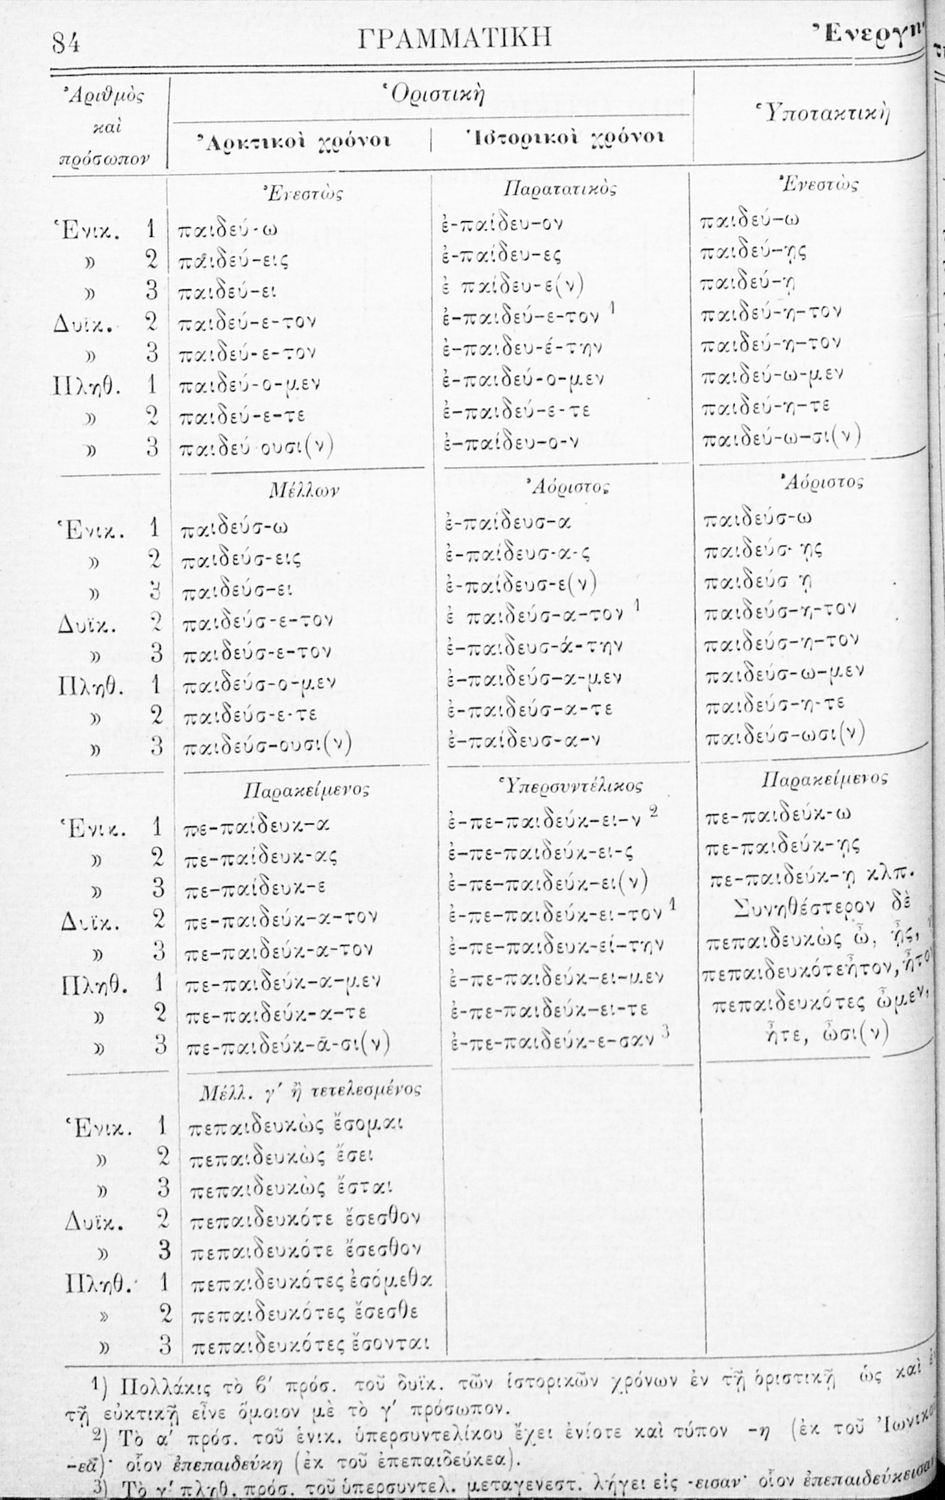 84 ΓΡΑΜΜΑΤΙΚΗ
Ἀριθμὸς Ὁριστικὴ
καὶ Ὑποτακτικὴ
πρόσωπον Ἀρκτικοὶ χρόνοι | Ἱστορικοὶ χρόνοι
Ἐνεστὼς Παρατατικὸς Ἐνεστὼς
Ἑνικ. 1 παιδεύ-ω ἐ-παίδευ-ον παιδεύ-ω
» 2 παιδεύ-εις ἐ-παίδευ-ες παιδεύ-ῃς
» 3 παιδεύ-ει ἐ παίδευ-ε(ν) παιδεύ-ῃ
Δυϊκ. 2 παιδεύ-ε-τον ἐ-παιδεύ-ε-τον 1 παιδεύ-η-τον
» 3 παιδεύ-ε-τον ἐ-παιδευ-έ-την παιδεύ-η-τον
Πληθ. 1 παιδεύ-ο-μεν ἐ-παιδεύ-ο-μεν παιδεύ-ω-μεν
» 2 παιδεύ-ε-τε ἐ-παιδεύ-ε-τε παιδεύ-η-τε
» 3 παιδεύ ουσι(ν) ἐ-παίδευ-ο-ν παιδεύ-ω-σι(ν)
Μέλλων Ἀόριστος Ἀόριστος
Ἑνικ. 1 παιδεύσ-ω ἐ-παίδευσ-α παιδεύσ-ω
» 2 παιδεύσ-εις ἐ-παίδευσ-α-ς παιδεύσ-ῃς
» 3 παιδεύσ-ει ἐ-παίδευσ-ε(ν) παιδεύσ ῃ
Δυϊκ. 2 παιδεύσ-ε-τον ἐ παιδεύσ-α-τον 1 παιδεύσ-η-τον
» 3 παιδεύσ-ε-τον ἐ-παιδευσ-ά-την παιδεύσ-η-τον
Πληθ. 1 παιδεύσ-ο-μεν ἐ-παιδεύσ-α-μεν παιδεύσ-ω-μεν
» 2 παιδεύσ-ε-τε ἐ-παιδεύσ-α-τε παιδεύσ-η-τε
» 3 παιδεύσ-ουσι(ν) ἐ-παίδευσ-α-ν παιδεύσ-ωσι(ν)
Παρακείμενος Ὑπερσυντέλικος Παρακείμενος
Ἑνικ. 1 πε-παίδευκ-α ἐ-πε-παιδεύκ-ει-ν 2 πε-παιδεύκ-ω
» 2 πε-παίδευκ-ας ἐ-πε-παιδεύκ-ει-ς πε-παιδεύκ-ῃς
» 3 πε-παίδευκ-ε ἐ-πε-παιδεύκ-ει(ν) πε-παιδεύκ-ῃ κλπ.
Δυϊκ. 2 πε-παιδεύκ-α-τον ἐ-πε-παιδεύκ-ει-τον 1 Συνηθέστερον δὲ
» 3 πε-παιδεύκ-α-τον ἐ-πε-παιδευκ-εί-την πεπαιδευκὼς ὦ, ᾖς,
Πληθ. 1 πε-παιδεύκ-α-μεν ἐ-πε-παιδεύκ-ει-μεν πεπαιδευκότε ἦτον,
» 2 πε-παιδεύκ-α-τε ἐ-πε-παιδεύκ-ει-τε πεπαιδευκότες ὦμεν,
» 3 πε-παιδεύκ-ᾱ-σι(ν) ἐ-πε-παιδεύκ-ε-σαν 3 ἦτε, ὦσι(ν)
Μέλλ. γ′ ἢ τετελεσμένος
Ἑνικ. 1 πεπαιδευκὼς ἔσομαι
» 2 πεπαιδευκὼς ἔσει
» 3 πεπαιδευκὼς ἔσται
Δυϊκ. 2 πεπαιδευκότε ἔσεσθον
» 3 πεπαιδευκότε ἔσεσθον
Πληθ. 1 πεπαιδευκότες ἐσόμεθα
» 2 πεπαιδευκότες ἔσεσθε
» 3 πεπαιδευκότες ἔσονται
1) Πολλάκις τὸ β′ πρόσ. τοῦ δυϊκ. τῶν ἱστορικῶν χρόνων ἐν τῇ ὁριστικῇ ὡς καὶ
τῇ εὐκτικῇ εἶνε ὅμοιον μὲ τὸ γ′ πρόσωπον.
2) Τὸ α′ πρόσ. τοῦ ἑνικ. ὑπερσυντελίκου ἔχει ἐνίοτε καὶ τύπον -η (ἐκ τοῦ
-εα)· οἷον ἐπεπαιδεύκη (ἐκ τοῦ ἐπεπαιδεύκεα).
3) Τὸ γ′ πληθ. πρόσ. τοῦ ὑπερσυντελ. μεταγενεστ. λήγει εἰς -εισαν· οἷον